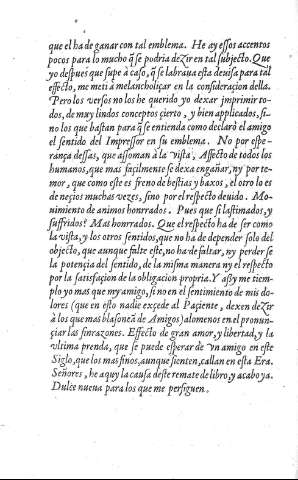 que el ha de ganar con tal emblema. He ay essos accentos
pocos para lo mucho q̃ se podria deZir en tal subjecto. Que
yo despues que supe à caso, q̃ se labraua esta deuisa para tal
effecto, me meti à melancholiçar en la consideracion della.
Pero los versos no los he querido yo dexar imprimir to-
dos, de muy lindos conceptos çierto, y bien applicados, si-
no los que bastan para q̃ se entienda como declarò el amigo
el sentido del Impressor en su emblema. No por espe-
rança dessas, que assoman à la vista, Affecto de todos los
humanos, que mas façilmente se dexa engañar, ny por te-
mor, que como este es freno de bestias y baxos, el otro lo es
de neçios muchas vezes, sino por el respecto deuido. Mo-
uimiento de animos honrrados. Pues que si lastimados, y
suffridos? Mas honrrados. Que el respecto ha de ser como
la vista, y los otros sentidos, que no ha de depender solo del
objecto, que aunque falte este, no ha de faltar, ny perder se
la potençia del sentido, de la misma manera ny el respecto
por la satisfacion de la obligacion propria. Y assy me tiem-
plo yo mas que my amigo, si no en el sentimiento de mis do-
lores (que en esto nadie excede al Paçiente, dexen deZir
à los que mas blasonẽ de Amigos) alomenos en el pronun-
çiar las sinrazones. Effecto de gran amor, y libertad, y la
vltima prenda, que se puede esperar de vn amigo en este
Siglo, que los mas finos, aunque sienten, callan en esta Era.
Señores, he aquy la causa deste remate de libro, y acabo ya.
Dulce nueua para los que me persiguen.